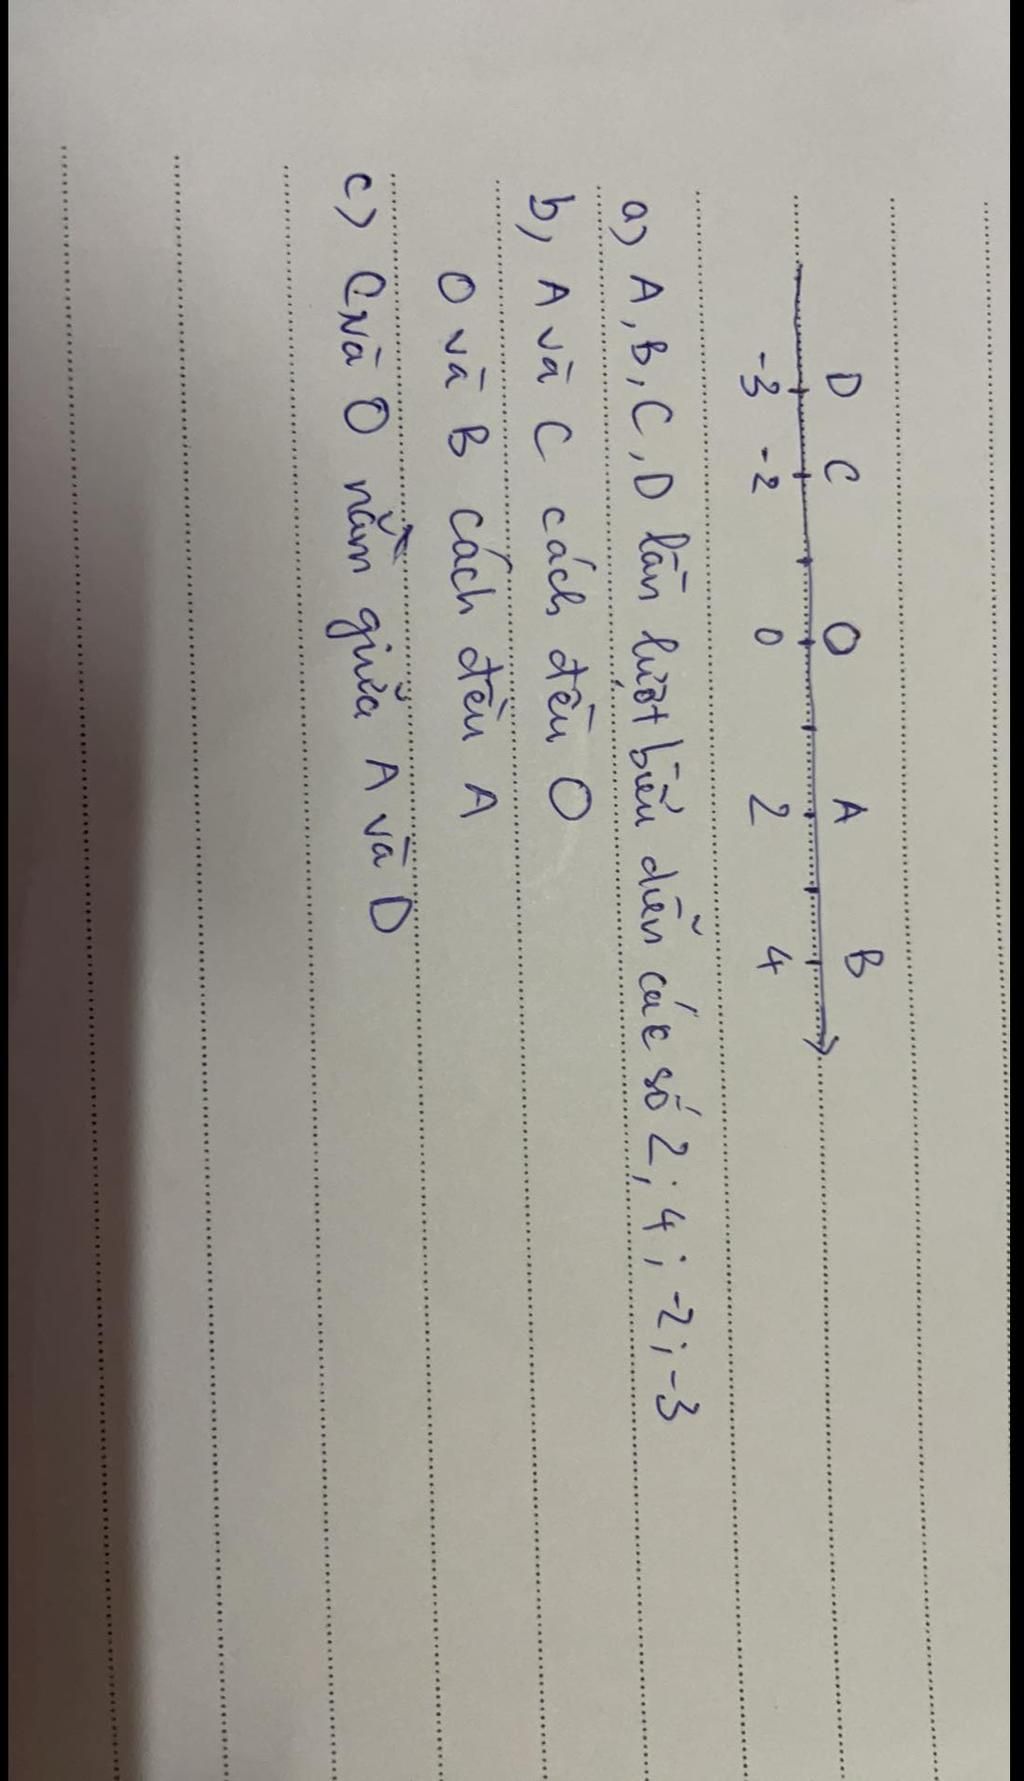 D C O A B
-3 -2 0 2 4
a) A, B, C, D lần lượt biểu diễn các số 2; 4; -2; -3
b, A và C cách đều O
O và B cách đều A
c) C và O nằm giữa A và D